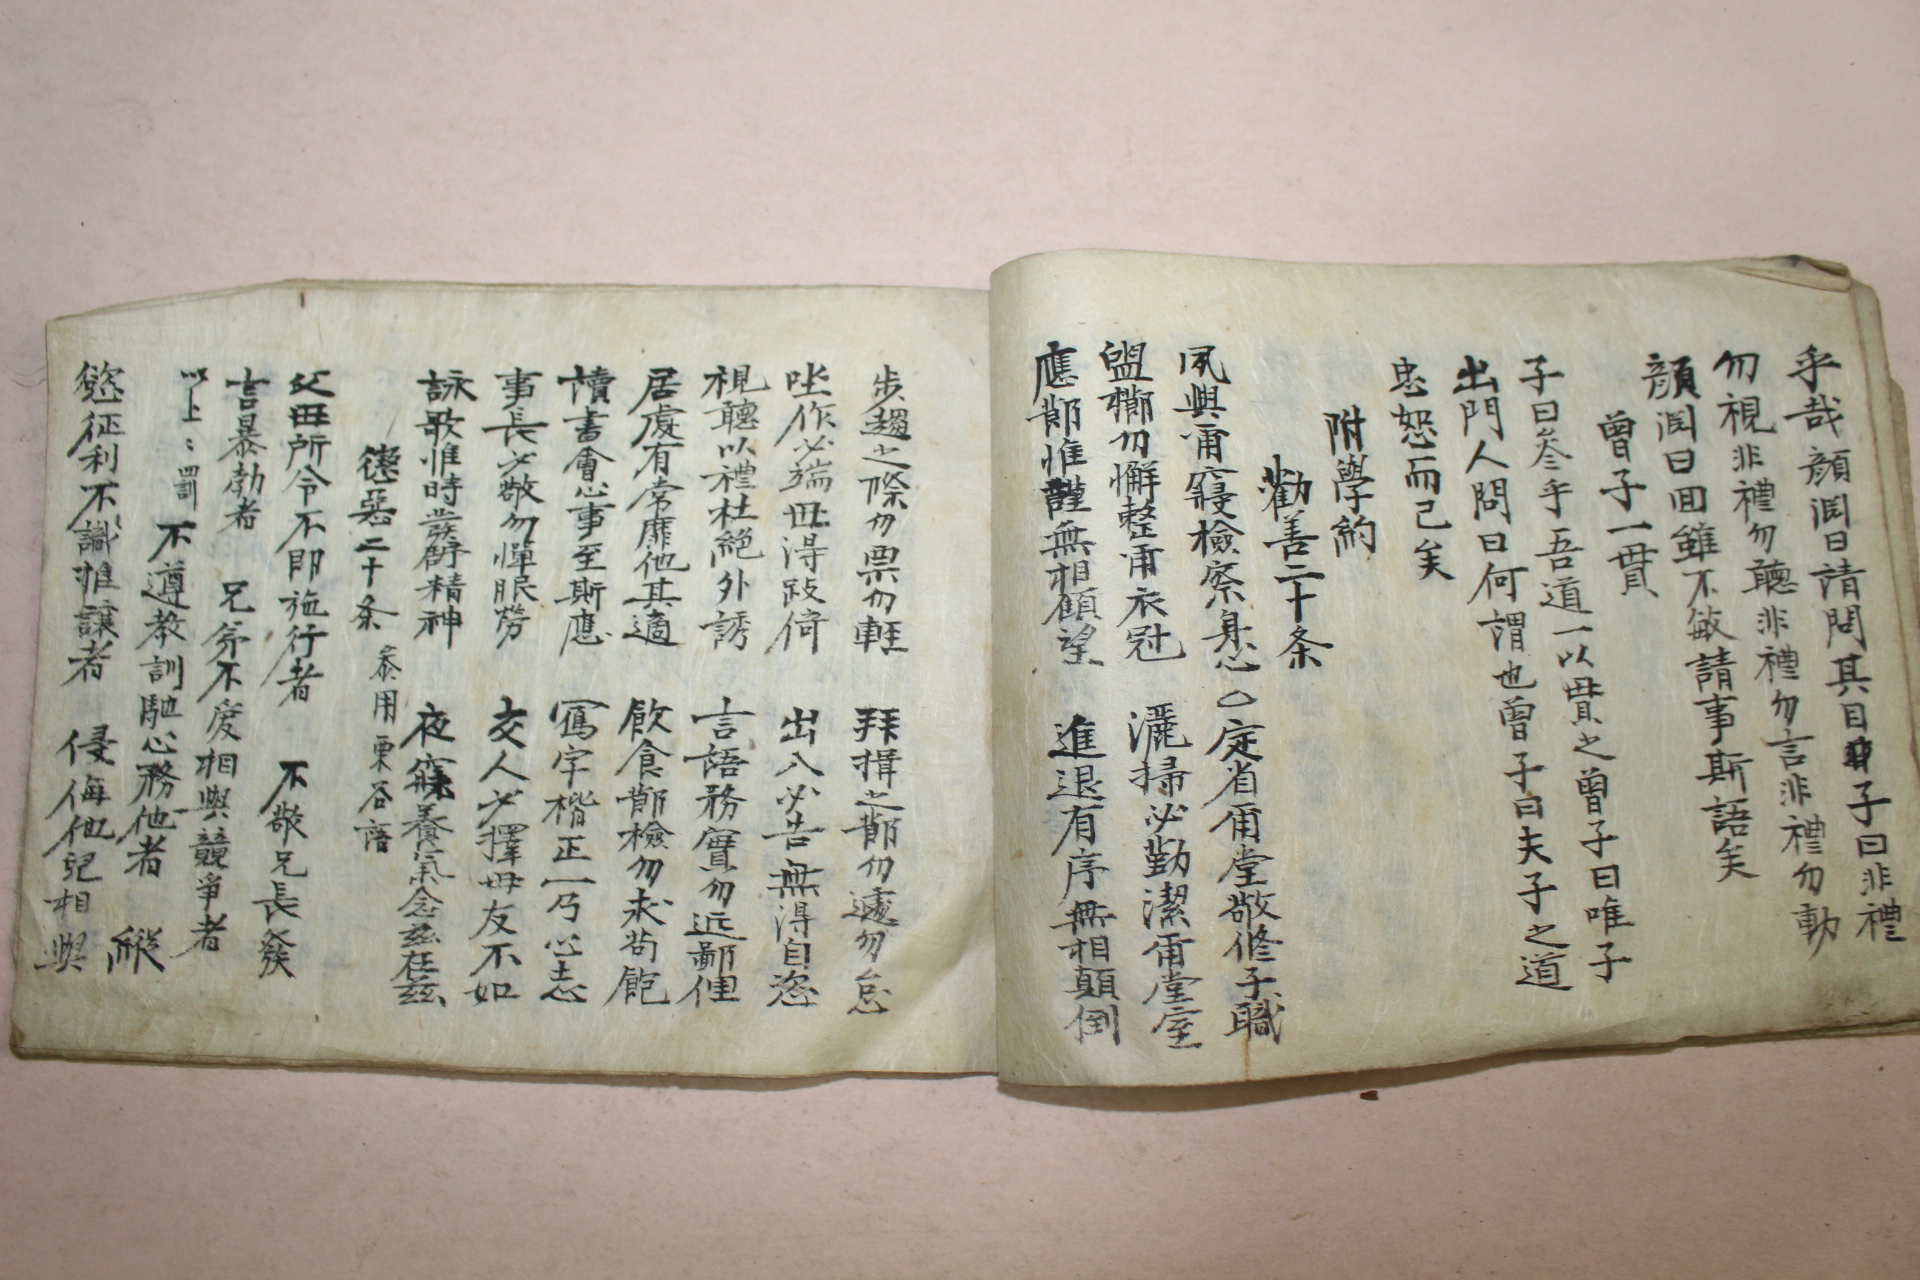 乎哉顔渊曰請問其目子曰非禮
勿視非禮勿聽非禮勿言非禮勿動
顔渊曰回雖不敏請事斯語矣
曾子一貫
子曰參乎吾道一以貫之曾子曰唯子
出門人問曰何謂也曾子曰夫子之道
忠恕而已矣
附學約
勸善二十条
夙興甭寢檢察身心 定省甭堂敬修子職
盥櫛勿懈整甭衣冠 灑掃必勤潔甭堂室
應節惟謹無相顧望 進退有序無相顛倒
步趨之際勿票勿輕 拜揖之節勿遽勿怠
坐作必端毋得跛倚 出入必告無得自恣
視聽以禮杜絕外誘 言語務實勿近鄙俚
居處有常靡他其適 飲食節檢勿求苟飽
讀書會心事至斯應 寫字楷正一乃心志
事長必敬勿憚服勞 交人必擇毋友不如
詠歌惟時發舒精神 夜寐養氣念兹在兹
德惡二十条 叅用栗谷語
父母所令不即施行者 不敬兄長發
言暴勃者 兄弟不度相與競爭者
以上 罰 不遵教訓馳心務他者 縱
慾征利不識推讓者 侵侮他兒相與